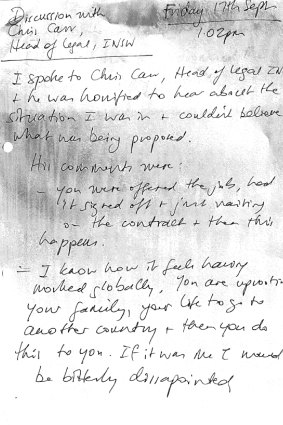 Discussion with
Chris Carr,
Head of Legal, INSW
Friday 17th Sept
1.02pm
I spoke to Chris Carr, Head of Legal IN
+ he was horrified to hear about the
situation I was in + couldn't believe
what was being proposed.
His comments were:
- you were offered the job, had
it signed off + just waiting
on the contract + then this
happens.
- I know how it feels having
worked globally. You are uprooting
your family, your life to go to
another country + then you do
this to you. If it was me I would
be bitterly disappointed